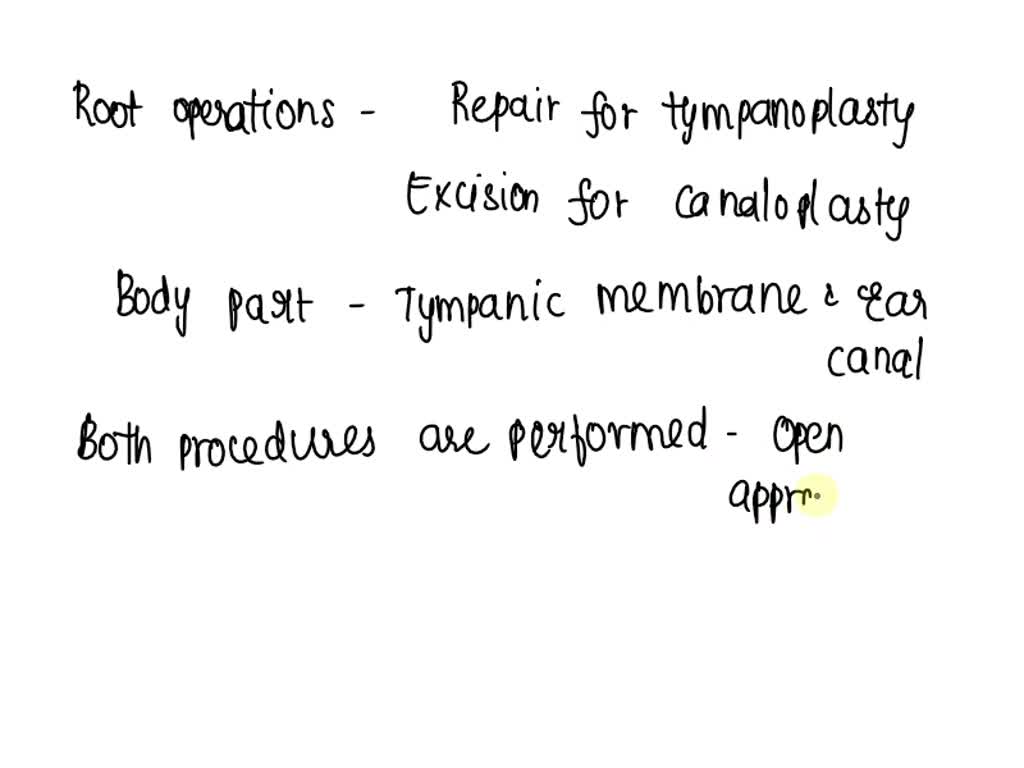 Root operations - Repair for tympanoplasty
Excision for canaloplasty
Body part - Tympanic membrane & Ear
canal
Both procedures are performed - Open
appr